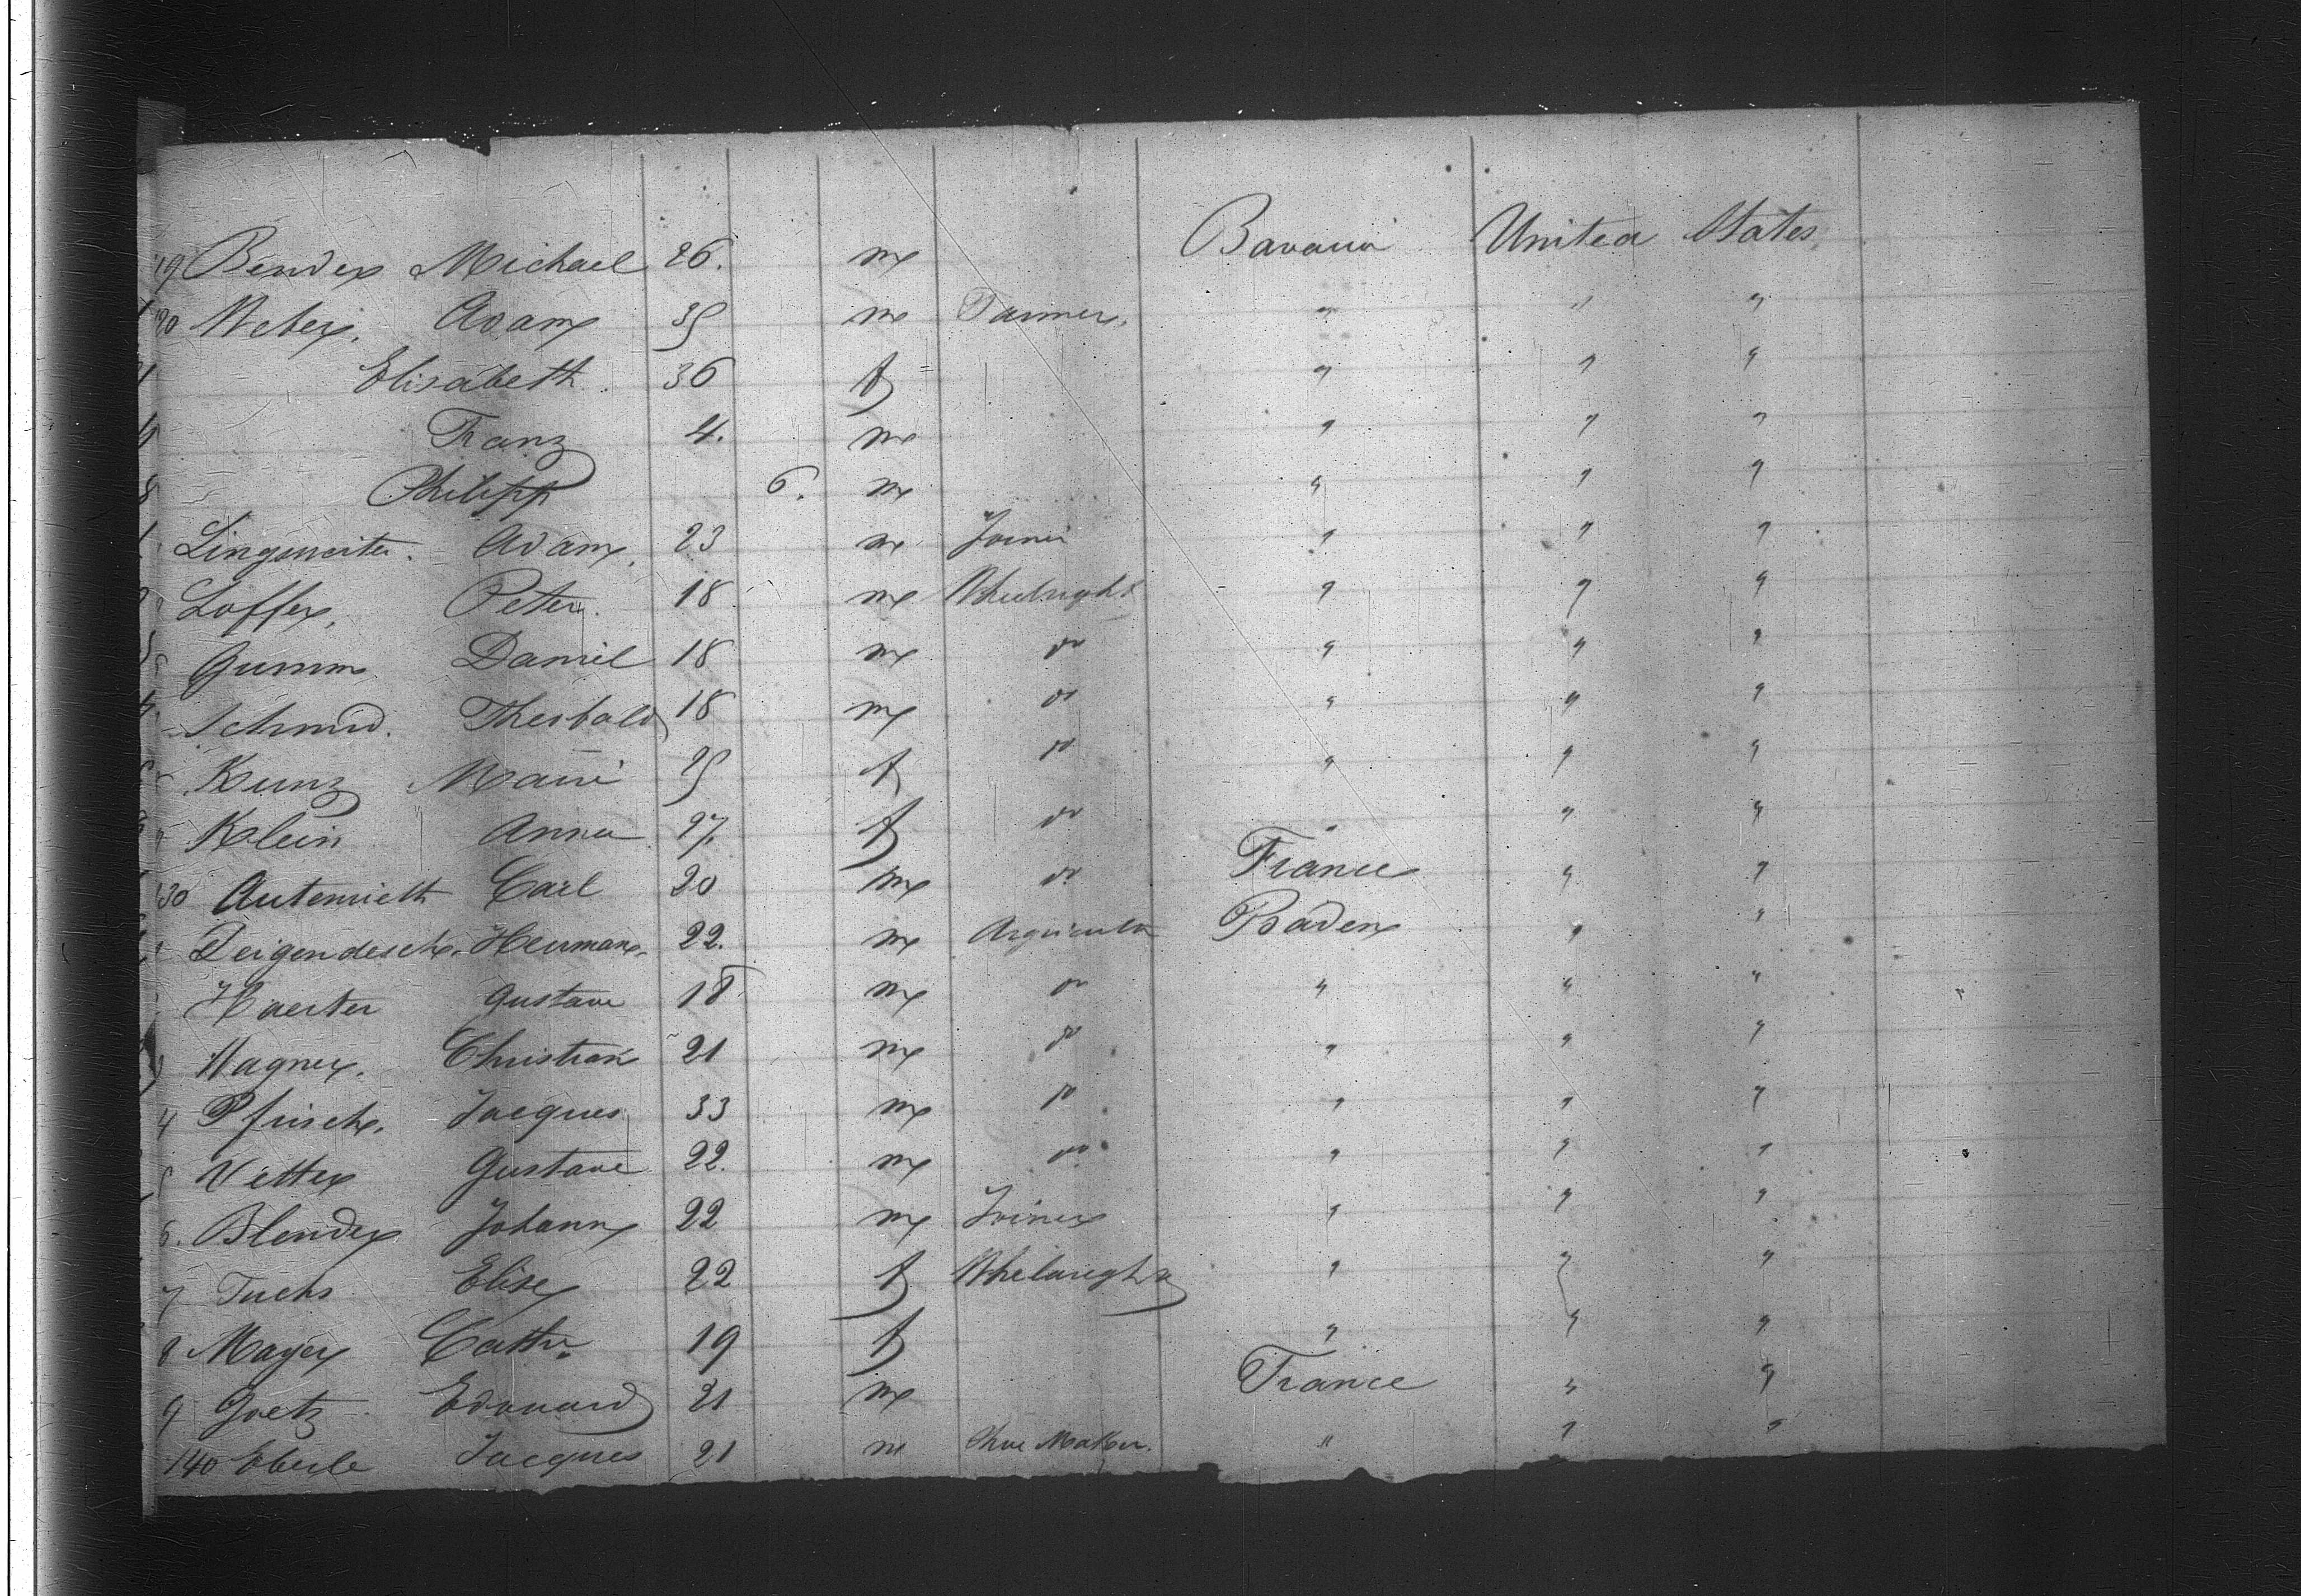 19 Bender Michael 26. m Bavaria United States
120 Weber. Adam 35 m Farmer. " " "
Elisabeth. 36 f " " "
Franz 4. m " " "
Philipp 6. m " " "
Adam. 23 m Joiner " " "
Loffer. Peter. 18 m " " "
Gumm Daniel 18 m do " " "
Schmid. Theobald 18 m do " " "
Kunz Marie 25 f do " " "
Klein Anna 27. f do " " "
130 Autenrieth Carl 20 m do France " "
Hermann. 22. m Baden " "
Haerter Gustave 18 m do " " "
Wagner. Christian 21 m do " " "
4 Jacques 33 m do " " "
5 Vetter Gustave 22. m do " " "
6. Blender Johann 22 m Joiner " " "
7 Fuchs Elise 22 f " " "
8 Mayer Cath. 19 f " " "
9 Goetz Edouard 21 m France " "
140 Eberle Jacques 21 m Shoe Maker. " " "